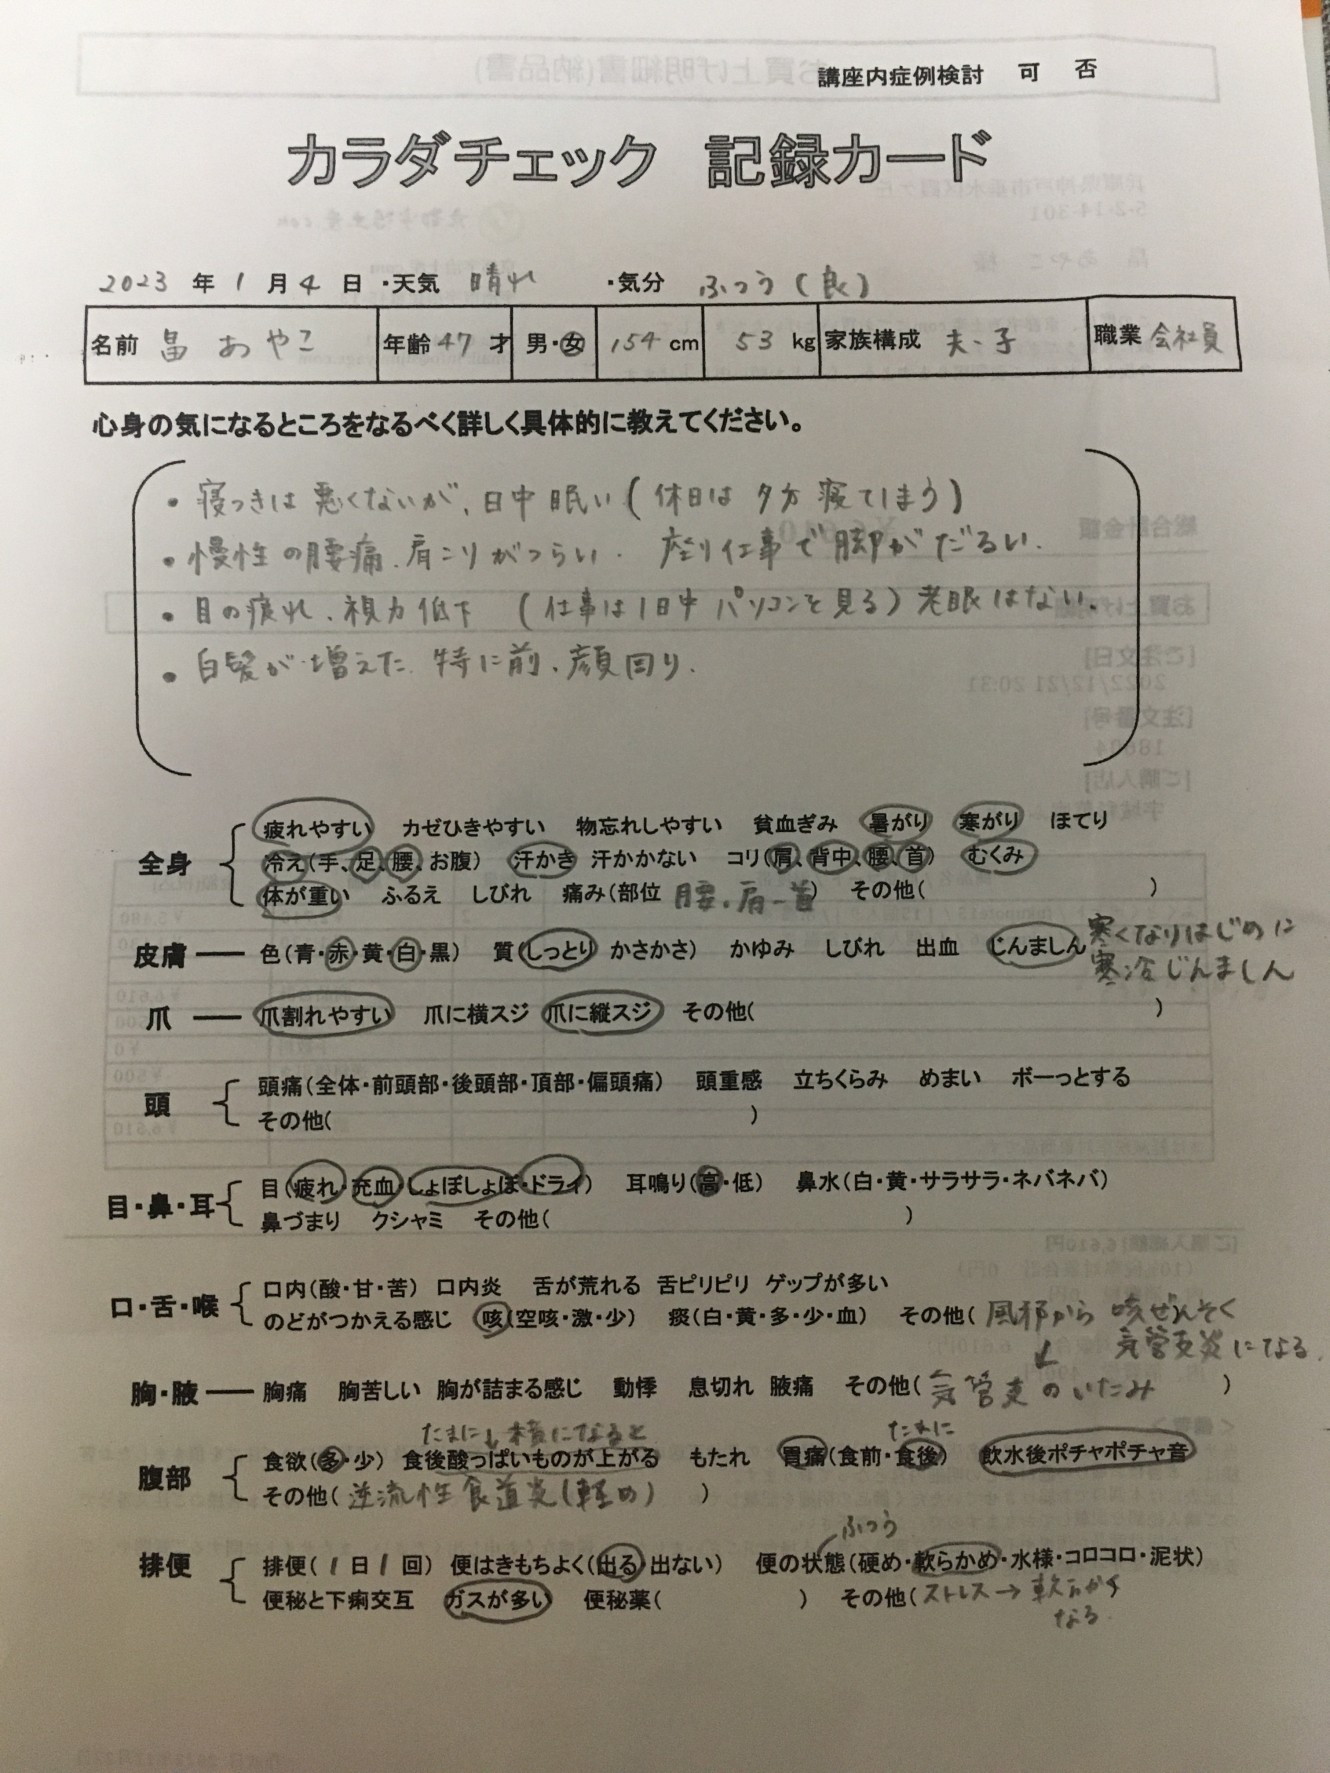 講座内症例検討　可　否
カラダチェック　記録カード
2023 年 1 月 4 日 ・天気 晴れ ・気分 ふつう(良)
名前 畠 あやこ 年齢 47 才 男・女 154 cm 53 kg 家族構成 夫、子 職業 会社員
心身の気になるところをなるべく詳しく具体的に教えてください。
・寝つきは悪くないが、日中眠い(休日は夕方寝てしまう)
・慢性の腰痛、肩こりがつらい. 座り仕事で脚がだるい.
・目の疲れ、視力低下 (仕事は1日中パソコンを見る)老眼はない。
・白髪が増えた. 特に前、顔回り.
全身 疲れやすい カゼひきやすい 物忘れしやすい 貧血ぎみ 暑がり 寒がり ほてり
冷え(手、足、腰、お腹) 汗かき 汗かかない コリ(肩、背中、腰、首) むくみ
体が重い ふるえ しびれ 痛み(部位 腰、肩-首) その他( )
皮膚 色(青・赤・黄・白・黒) 質(しっとり かさかさ) かゆみ しびれ 出血 じんましん 寒くなりはじめに
寒冷じんましん
爪 爪割れやすい 爪に横スジ 爪に縦スジ その他( )
頭 頭痛(全体・前頭部・後頭部・頂部・偏頭痛) 頭重感 立ちくらみ めまい ボーっとする
その他( )
目・鼻・耳 目(疲れ・充血・しょぼしょぼ・ドライ) 耳鳴り(高・低) 鼻水(白・黄・サラサラ・ネバネバ)
鼻づまり クシャミ その他( )
口・舌・喉 口内(酸・甘・苦) 口内炎 舌が荒れる 舌ピリピリ ゲップが多い
のどがつかえる感じ 咳(空咳・激・少) 痰(白・黄・多・少・血) その他( 風邪から 咳ぜんそく
↙ 気管支炎になる.
胸・腋 胸痛 胸苦しい 胸が詰まる感じ 動悸 息切れ 腋痛 その他( 気管支のいたみ )
たまに↓ 横になると たまに
腹部 食欲(多・少) 食後酸っぱいものが上がる もたれ 胃痛(食前・食後) 飲水後ポチャポチャ音
その他( 逆流性食道炎(軽め) )
ふつう
排便 排便( 1 日 1 回) 便はきもちよく(出る・出ない) 便の状態(硬め・軟らかめ・水様・コロコロ・泥状)
便秘と下痢交互 ガスが多い 便秘薬( ) その他( ストレス→軟らかく
なる.